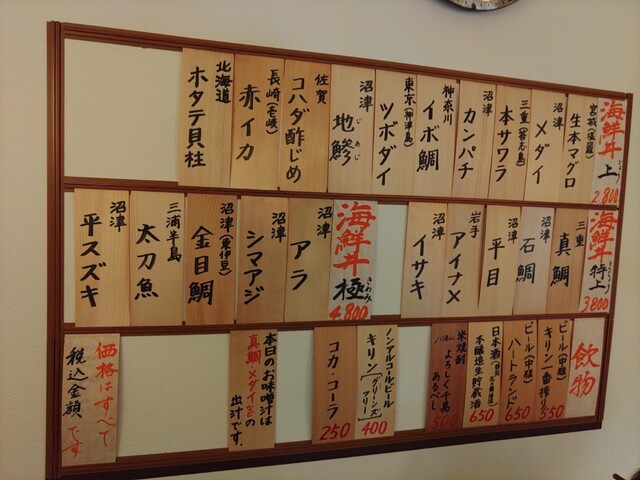 海鮮丼 上 2.800
宮城(塩竈) 生本マグロ
沼津 メダイ
三重(答志島) 本サワラ
沼津 カンパチ
神奈川 イボ鯛
東京(神津島) ツボダイ
沼津 地鯵 じあじ
佐賀 コハダ酢じめ
長崎(壱岐) 赤イカ
北海道 ホタテ貝柱
海鮮丼 特上 3.800
三重 真鯛
沼津 石鯛
沼津 平目
岩手 アイナメ
沼津 イサキ
海鮮丼 極 きわみ 4.800
沼津 アラ
沼津 シマアジ
沼津(東伊豆) 金目鯛
三浦半島 太刀魚
沼津 平スズキ
飲物
ビール(中瓶) キリン一番搾り 550
ビール(中瓶) ハートランド 650
日本酒 本醸造生貯蔵酒 650
米焼酎 よろしく千萬あるべし 500
ノンアルコールビール キリン(グリーンズフリー) 400
コカ・コーラ 250
本日のお味噌汁は
真鯛・メダイetcの
出汁です。
価格はすべて
税込金額です